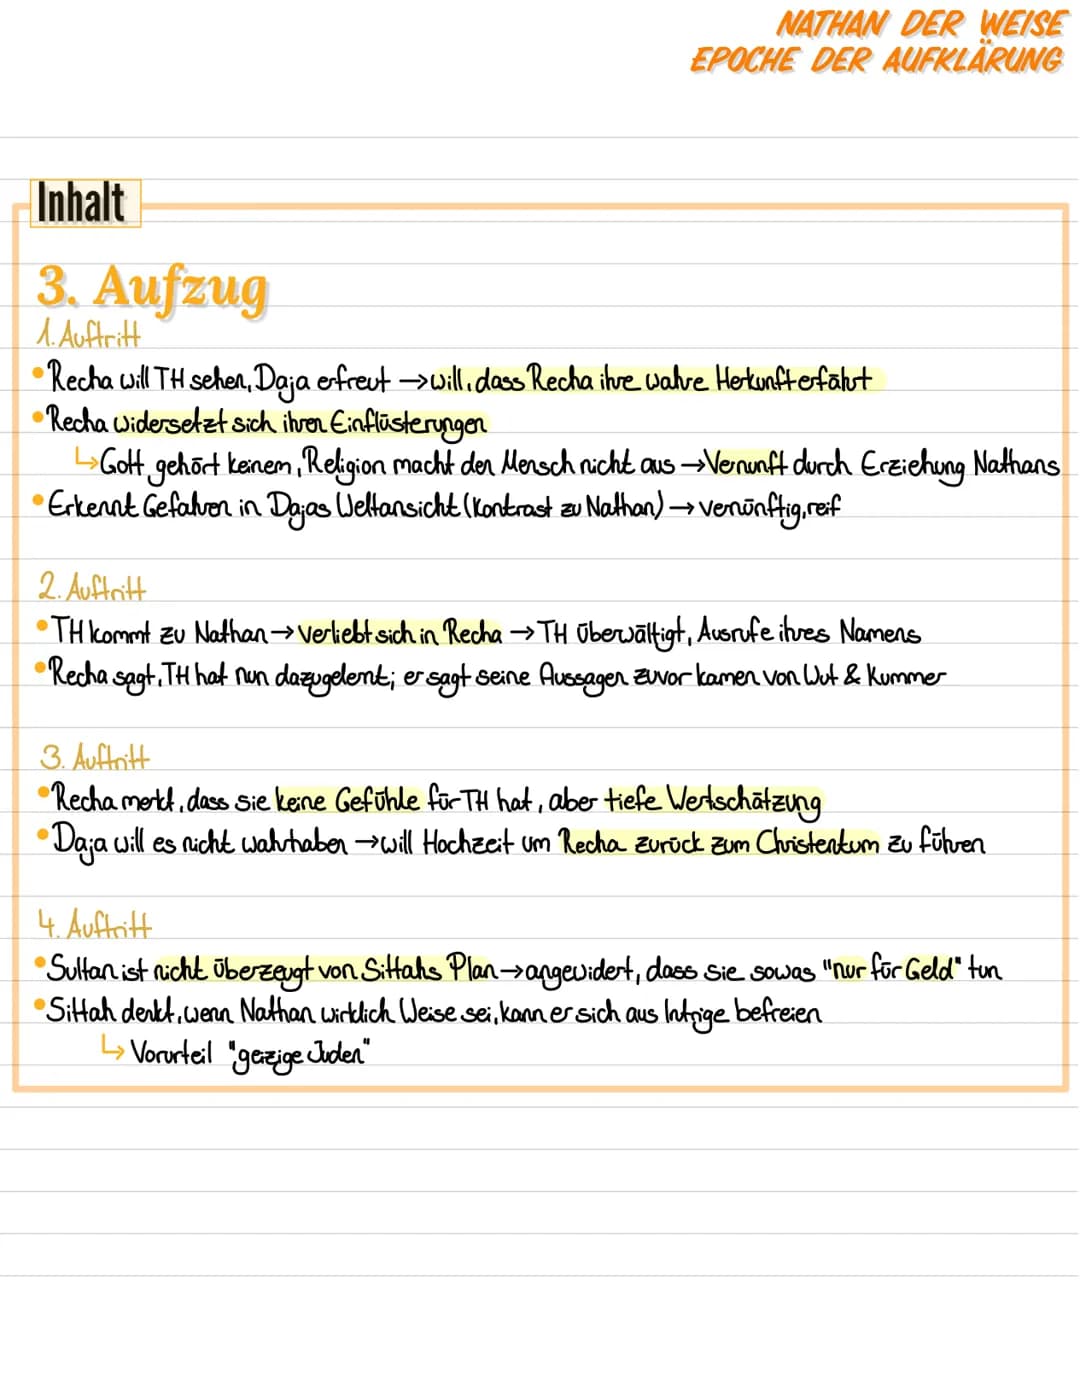 NATHAN DER WEISE
EPOCHE DER AUFKLÄRUNG
Inhalt
3. Aufzug
1. Auftritt
• Recha will TH sehen, Daja erfreut → will, dass Recha ihre wahre Herkunft erfährt
• Recha widersetzt sich ihren Einflüsterungen
↳ Gott gehört keinem, Religion macht den Mensch nicht aus → Vernunft durch Erziehung Nathans
• Erkennt Gefahren in Dajas Weltansicht (Kontrast zu Nathan) → vernünftig, reif
2. Auftritt
• TH kommt zu Nathan → verliebt sich in Recha → TH überwältigt, Ausrufe ihres Namens
• Recha sagt, TH hat nun dazugelernt; er sagt seine Aussagen zuvor kamen von Wut & Kummer
3. Auftritt
• Recha merkt, dass sie keine Gefühle für TH hat, aber tiefe Wertschätzung
• Daja will es nicht wahrhaben → will Hochzeit um Recha zurück zum Christentum zu führen
4. Auftritt
• Sultan ist nicht überzeugt von Sittahs Plan → angewidert, dass sie sowas "nur für Geld" tun
• Sittah denkt, wenn Nathan wirklich Weise sei, kann er sich aus Intrige befreien
↳ Vorurteil "geizige Juden"